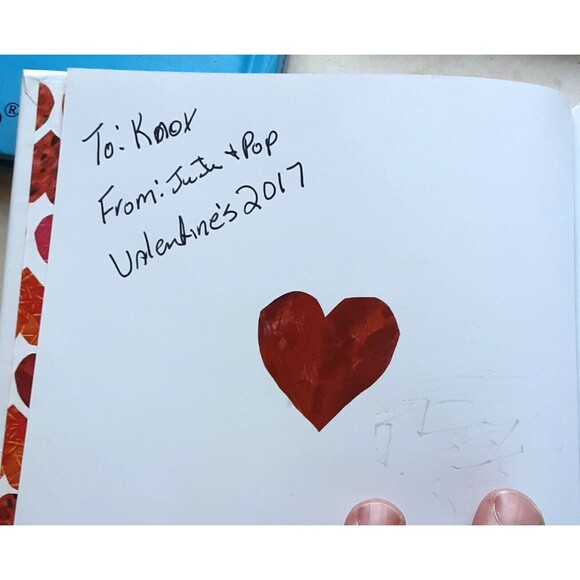 To: Knox
From: JuJu + Pop
Valentine's 2017
®